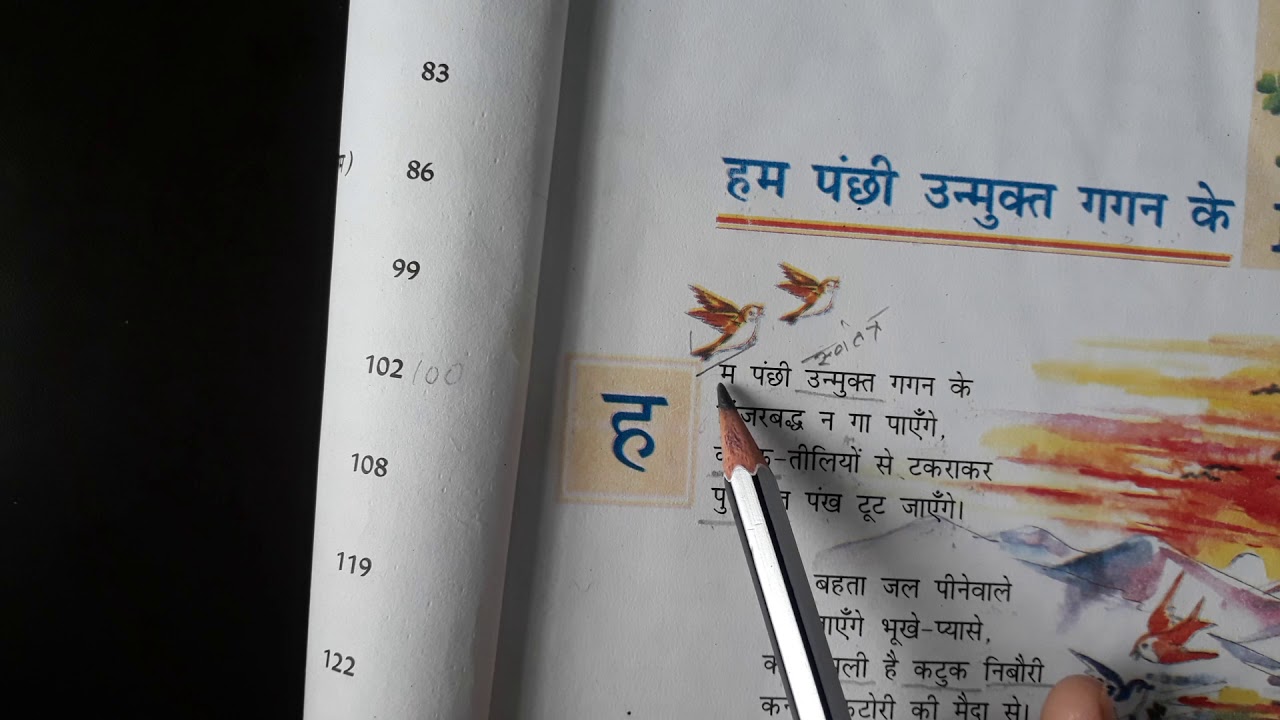 83
86
99
102 100
108
119
122
हम पंछी उन्मुक्त गगन के
ह
म पंछी उन्मुक्त गगन के
न गा पाएँगे,
-तीलियों से टकराकर
पंख टूट जाएँगे।
बहता जल पीनेवाले
भूखे-प्यासे,
है कटुक निबौरी
की मैदा से।